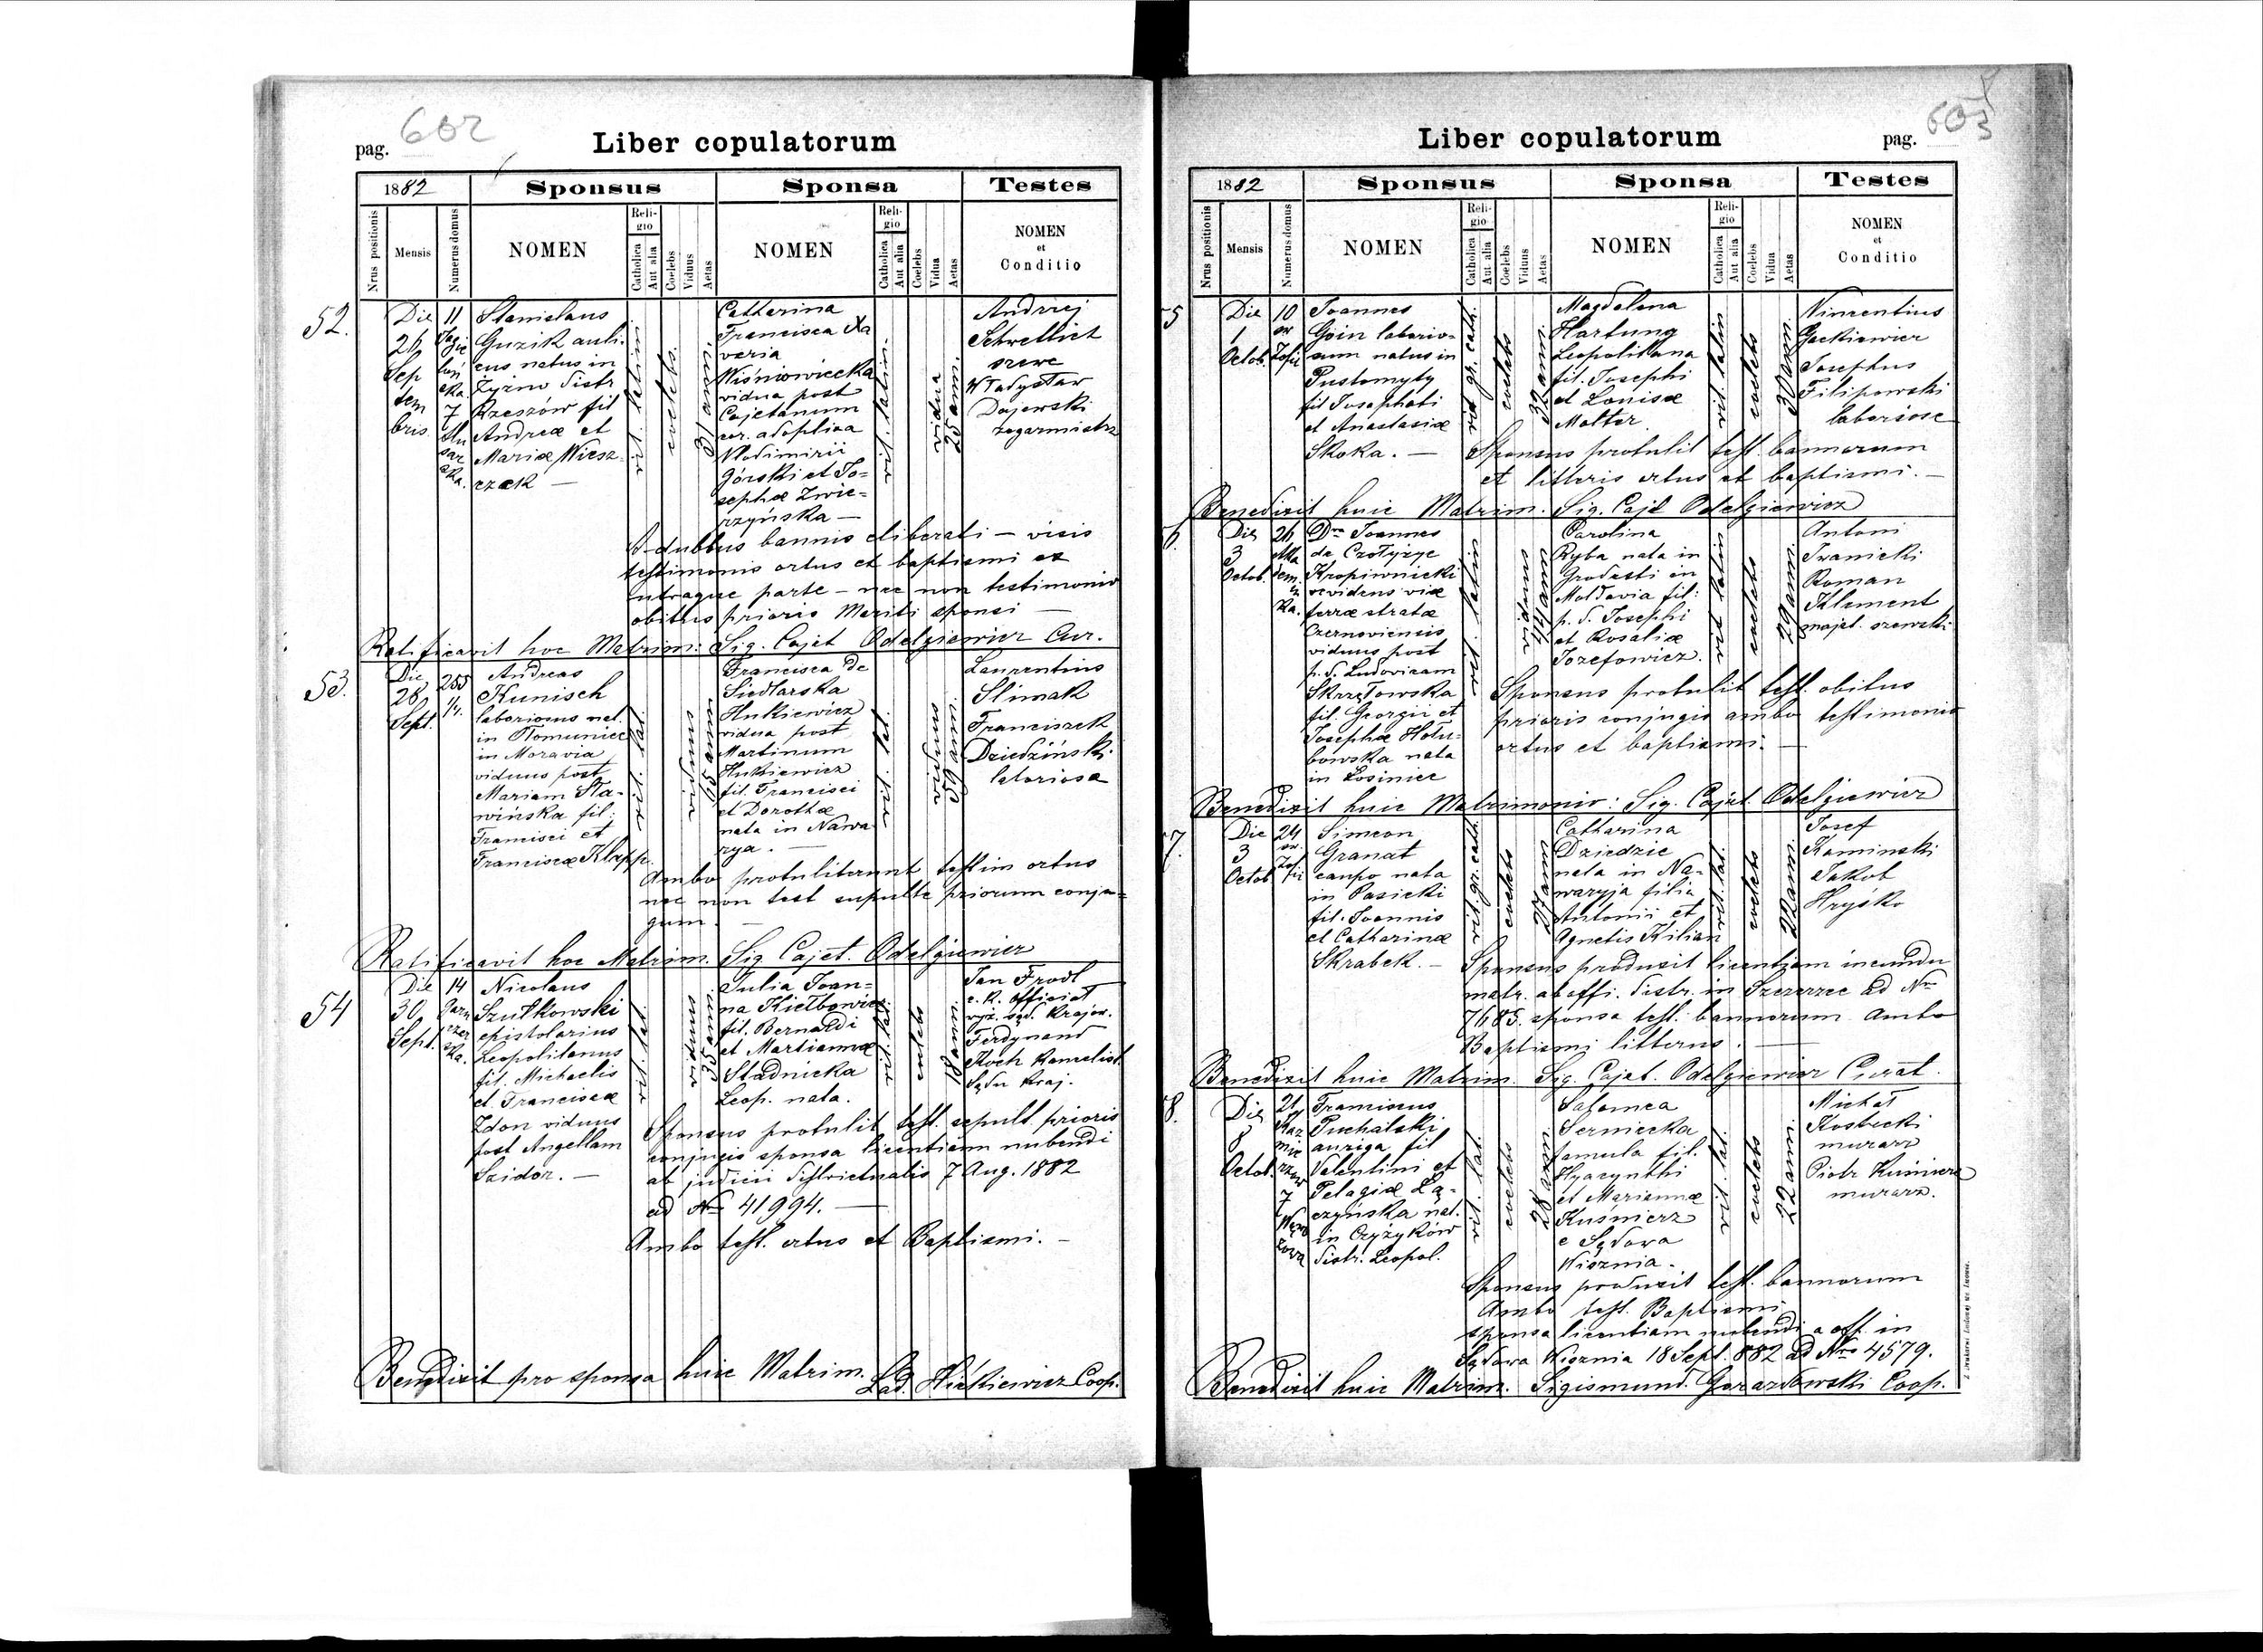 602
pag.
Liber copulatorum
1882
Sponsus
Sponsa
Testes
Nrus positionis
Mensis
Numerus domus
NOMEN
Religio
Catholica
Aut alia
Coelebs
Viduus
Aetas
NOMEN
Religio
Catholica
Aut alia
Coelebs
Vidua
Aetas
NOMEN
et
Conditio
52.
Die
26
Sep
tem
bris
11
7
Stanislaus
Guzik
natus in
distr
Rzeszów fil
Andreæ et
Mariæ Wiesz
czek —
rit. latin
coelebs
31 anni
Catharina
Francisca Xa
veria
Wiśniowiecka
vidua post
Cajetanum
adoptiva
Wlodimirii
Górski et Jo=
sephæ Zwie=
rzyńska —
rit. latin
vidua
25 ann.
Andrzej
szewc
Władysław
Dajewski
zegarmistrz
A duobus bannis — visis
testimonis ortus et baptismi ex
utraque parte — nec non testimonio
obitus prioris Mariti sponsi —
Ratificavit hoc Matrim: Sig. Cajet Odelgiewicz Cur.
53.
Die
28
Sept.
255
1/4.
Andreas
Kunisch
laboriosus nat.
in Ołomuniec
in Moravia
viduus post
Mariam Sła-
wińska fil:
Francisci et
Franciscæ Klapp.
rit. lat
viduus
Francisca de
Siedlarska
Hukiewicz
vidua post
Martinum
Hukiewicz
fil. Francisci
et Dorothæ
nata in Nawa
rya. —
rit. lat
viduus
Laurentius
Slimak
Franciszek
Dziedziński
Ambo protulerunt testim ortus
nec non test sepultæ priorum conju=
gum. —
Ratificavit hoc Matrim. Sig Cajet. Odelgiewicz
54
Die
30
Sept.
14
Nicolaus
Szutkowski
epistolarius
Leopolitanus
fil. Michaelis
et Franciscæ
Zdon viduus
post Angellam
Szidor. —
rit. lat.
viduus
35 anni
Julia Joan=
na Kiełbowicz
fil. Bernardi
et Martiannæ
Stadnicka
Leop. nata.
rit. lat.
coelebs
18 anni
Jan Frodl
c. k. officiał
Krajow.
Ferdynand
Koch Kancelist.
Sądu Kraj.
Sponsus protulit test. sepult. prioris
conjugis sponsa licentiam nubendi
ab judicii districtualis 7 Aug. 1882
ad № 41994. —
Ambo test. ortus et Baptismi. —
Benedixit pro sponsa huic Matrim. Coop.
Liber copulatorum
pag.
603
1882
Sponsus
Sponsa
Testes
Nrus positionis
Mensis
Numerus domus
NOMEN
Religio
Catholica
Aut alia
Coelebs
Viduus
Aetas
NOMEN
Religio
Catholica
Aut alia
Coelebs
Vidua
Aetas
NOMEN
et
Conditio
5
Die
1
Octob.
10
Zofii
Joannes
Goin laborio=
sum natus in
Pustomyty
fil Josephati
et Anastasiæ
Skoka. —
rit gr. cath.
coelebs
32 anni
Magdalena
Hartung
Leopolitana
fil. Josephi
et Louisæ
Molter.
rit latin
coelebs
30 ann.
Vincentius
Gackiewicz
Josephus
Filipowski
laboriosi
Sponsus protulit test. bannorum
et litteris ortus et baptismi. —
Benedixit huic Matrim. Sig. Cajt Odelgiewicz
6.
Die
3
Octob.
26
Aka
dem
ic
ka.
Joannes
de Czołyrze
Kropiwnicki
viæ
ferræ stratæ
Czernoviensis
viduus post
p. d. Ludovicam
Skrzetowska
fil. Georgii et
Josephæ Hołu-
bowska nata
in Łosiniec
rit. latin
viduus
44 anni
Carolina
Ryba nata in
in
Moldavia fil:
p. d. Josephi
et Rosaliæ
Jozefowicz.
rit. latin
coelebs
29 anni
Antoni
Iwanicki
Roman
Klement
majst. szewski
Sponsus protulit test. obitus
prioris conjugis ambo testimonio
ortus et baptismi. —
Benedixit huic Matrimonio: Sig. Cajet. Odelgiewicz
7.
Die
3
Octob
24
Zofii
Simeon
Granat
nata
in Pasieki
fil. Joannis
et Catharinæ
Skrabek. —
rit gr. cath.
coelebs
27 anni
Catharina
Dziedzic
nata in Na-
waryja filia
Antonii et
Agnetis Kilian
rit. lat.
coelebs
22 anni
Josef
Kaminski
Jakob
Hryśko
Sponsus produxit licentiam ineundu
matr. ab offi. distr. in Szczerzec ad Nr
7685. sponsa test. bannorum Ambo
Baptismi litterus. —
Benedixit huic Matrim. Sig. Cajet. Odelgiewicz Curat.
8.
Die
8
Octob.
21
Kaz
mie
rzow
7
Franciscus
Puchalski
auriga fil
Valentini et
Pelagiæ Łą-
czyńska nat.
in Czyżyków
distr. Leopol.
rit. lat.
coelebs
28 anni
Salomea
Serniecka
famula fil.
Hyacynthi
et Mariannæ
Kuśnierz
e Sądova
Wisznia.
rit. lat.
coelebs
22 anni
Michał
Kostecki
murarz
Piotr Kuśnierz
murarz.
Sponsus produxit test. bannorum
Ambo test. Baptismi
sponsa licentiam nubendi a off. in
Sądova Wisznia 18 Sept. 882 ad Nro 4579.
Benedixit huic Matrim. Sigismund. Gorazdowski Coop.